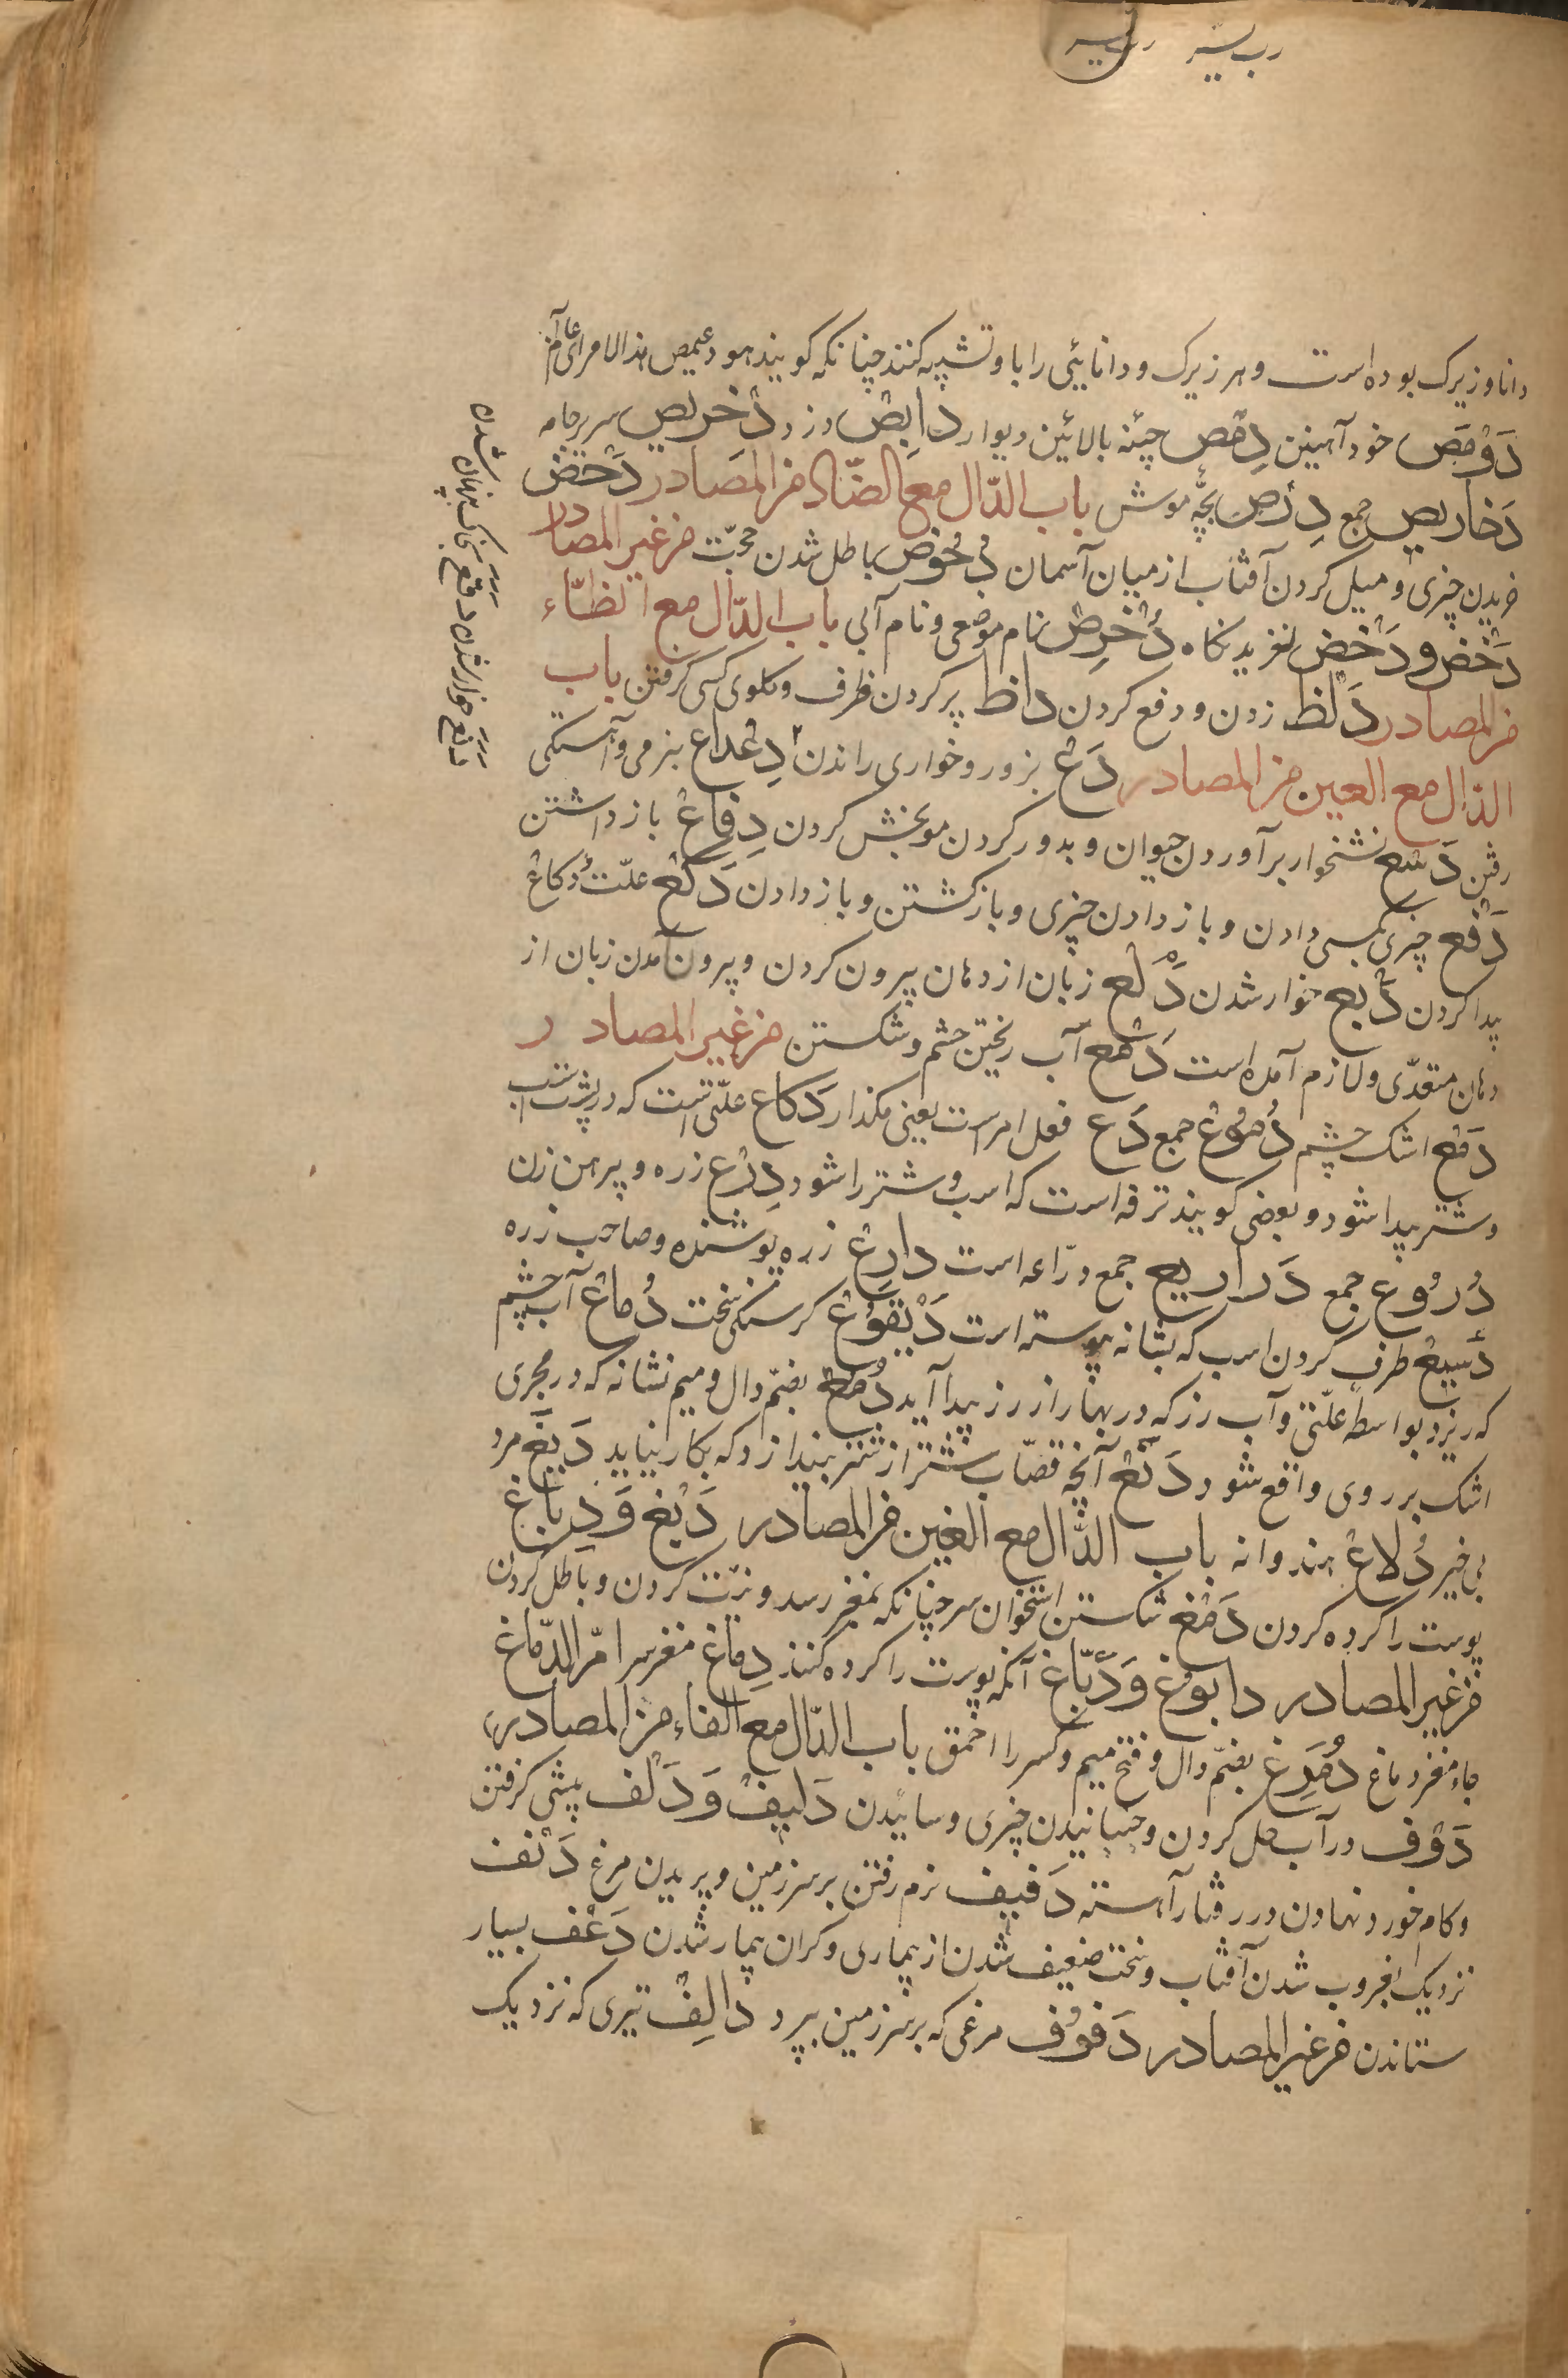 دانا و زیرک بوده است و هر زیرک و دانایی را باو تشبیه کنند چنانکه کویند هو دعمیص هذا الامر ای عالم
دَوْمَص خود آهنین دِمَص چینه بالائین دیوار دابِض دزد دخریص سر برجامه
دَخاریص جمع دِرْص بچّه موش باب الدّال مع الضّاد من المصادر دَحض
لغزیدن چیزی و میل کردن آفتاب از میان آسمان دُحُوض باطل شدن حجّت من غیر المصادر
دَحْض و دَخض لغزیدنکاه دُخرِض نام موضعی و نام آبی باب الدّال مع الظّاء
من المصادر دَلْظ زدن و دفع کردن داظ پر کردن ظرف و کلوی کسی کرفتن باب
الدّال مع العین من المصادر دَعّ بزور و خواری راندن دِعْداع بنرمی و آهستکی
رفتن دَسْع نشخوار برآوردن حیوان و بدور کردن مو بخش کردن دِفاع باز داشتن
دَفْع چیزی بکسی دادن و باز دادن چیزی و باز کشتن و باز دادن دَکْع علّت دُکاع
پیدا کردن دَبع خوار شدن دَلْع زبان از دهان بیرون کردن و بیرون آمدن زبان از
دهان متعدّی و لازم آمده است دَمْع آب ریختن چشم و شکستن من غیر المصادر
دَمْع اشک چشم دُمُوع جمع دَع فعل امر است یعنی مکذار دکاع علّتی است که در پشت اسب
و شتر پیدا شود و بعضی کویند ترفه است که اسب و شتر را شود دِرْع زره و پیرهن زن
دُرُوع جمع دَراریع جمع درّاعه است دارِع زره پوشنده و صاحب زره
دَسیع طرف کردن اسب که بشانه پیوسته است دَیْقُوع کرسنکی سخت دُماع آب چشم
که ریزد بواسطه علّتی و آب رز که در بهار از رز پیدا آید دُمُع بضمّ دال و میم نشانه که در مجری
اشک بر روی واقع شود دَنَع آنچه قصّاب شتر از شتر بیندازد که بکار نیاید دَنِع مرد
بی خیر دُلاع هندوانه باب الدّال مع الغین من المصادر دَبْغ وَ دِباغ
پوست را کرده کردن دَمْغ شکستن استخوان سر چنانکه بمغز رسد و نیّت کردن و باطل کردن
من غیر المصادر دابوغ وَ دَبّاغ آنکه پوست را کرده کنند دِماغ مغز سر امّ الدّماغ
جاء مغز دماغ دُمَرِغ بضمّ دال و فتح میم و کسر را احمق باب الدّال مع الفاء من المصادر
دَوْف در آب حل کردن و خیسانیدن چیزی و سائیدن دَلیف وَ دَلْف پیشی کرفتن
و کام خورد نهادن در رفتار آهسته دَفیف نرم رفتن بر سر زمین و پریدن مرغ دَنَف
نزدیک بغروب شدن آفتاب و سخت ضعیف شدن از بیماری و کران بیمار شدن دَعْف بسیار
ستاندن من غیر المصادر دَفُوف مرغی که بر سر زمین پرد دالِف تیری که نزدیک
دقع خوار شدن بخاک پنهان شدن